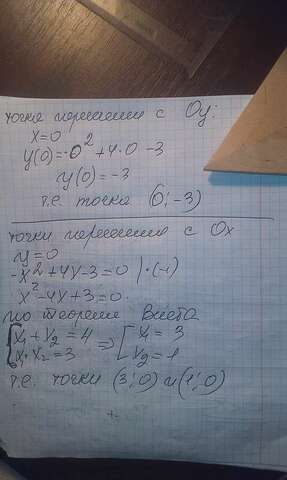 точка пересечения с Oy:
x=0
y(0)=-0²+4·0-3
y(0)=-3
т.е. точка (0;-3)
точки пересечения с Ox
y=0
-x²+4x-3=0 |·(-1)
x²-4x+3=0
по теореме Виета
{x₁+x₂=4 ⇒ [x₁=3
{x₁·x₂=3 [x₂=1
т.е. точки (3;0) и (1;0)